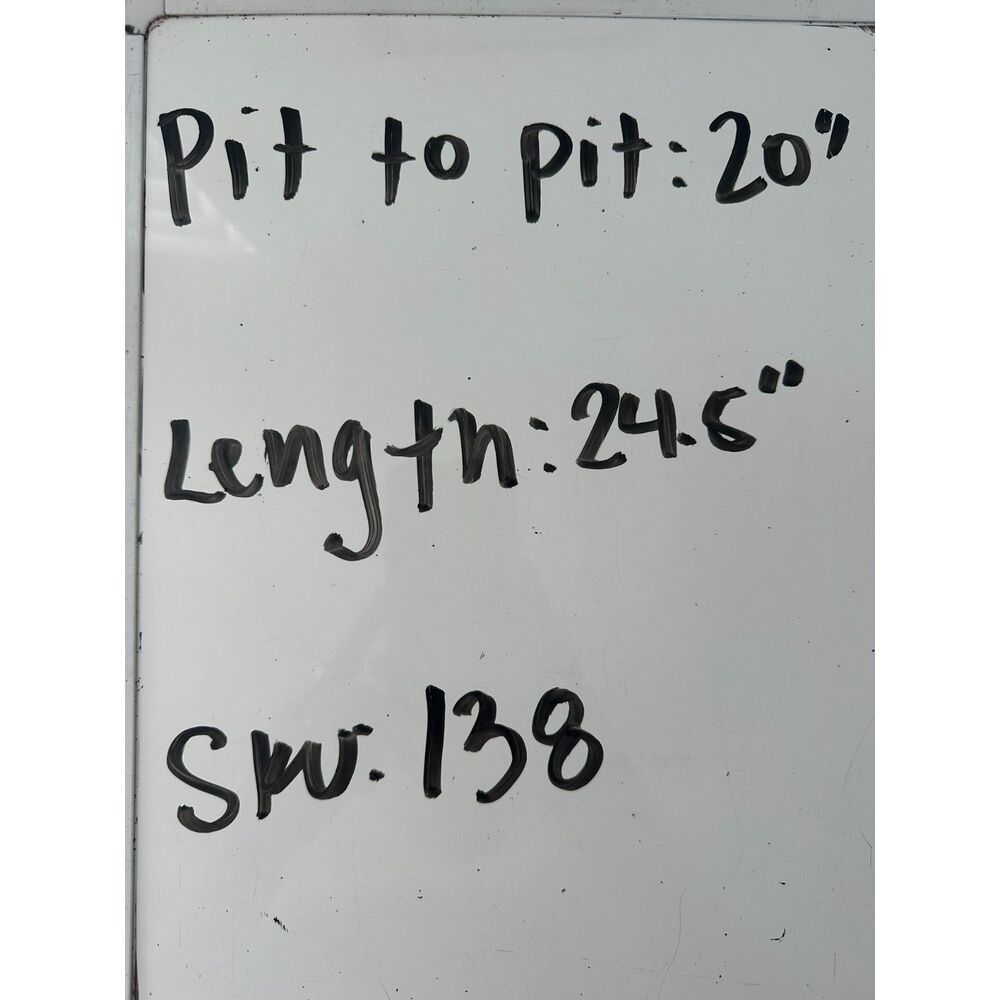 Pit to pit: 20"
Length: 24.5"
SKU: 138